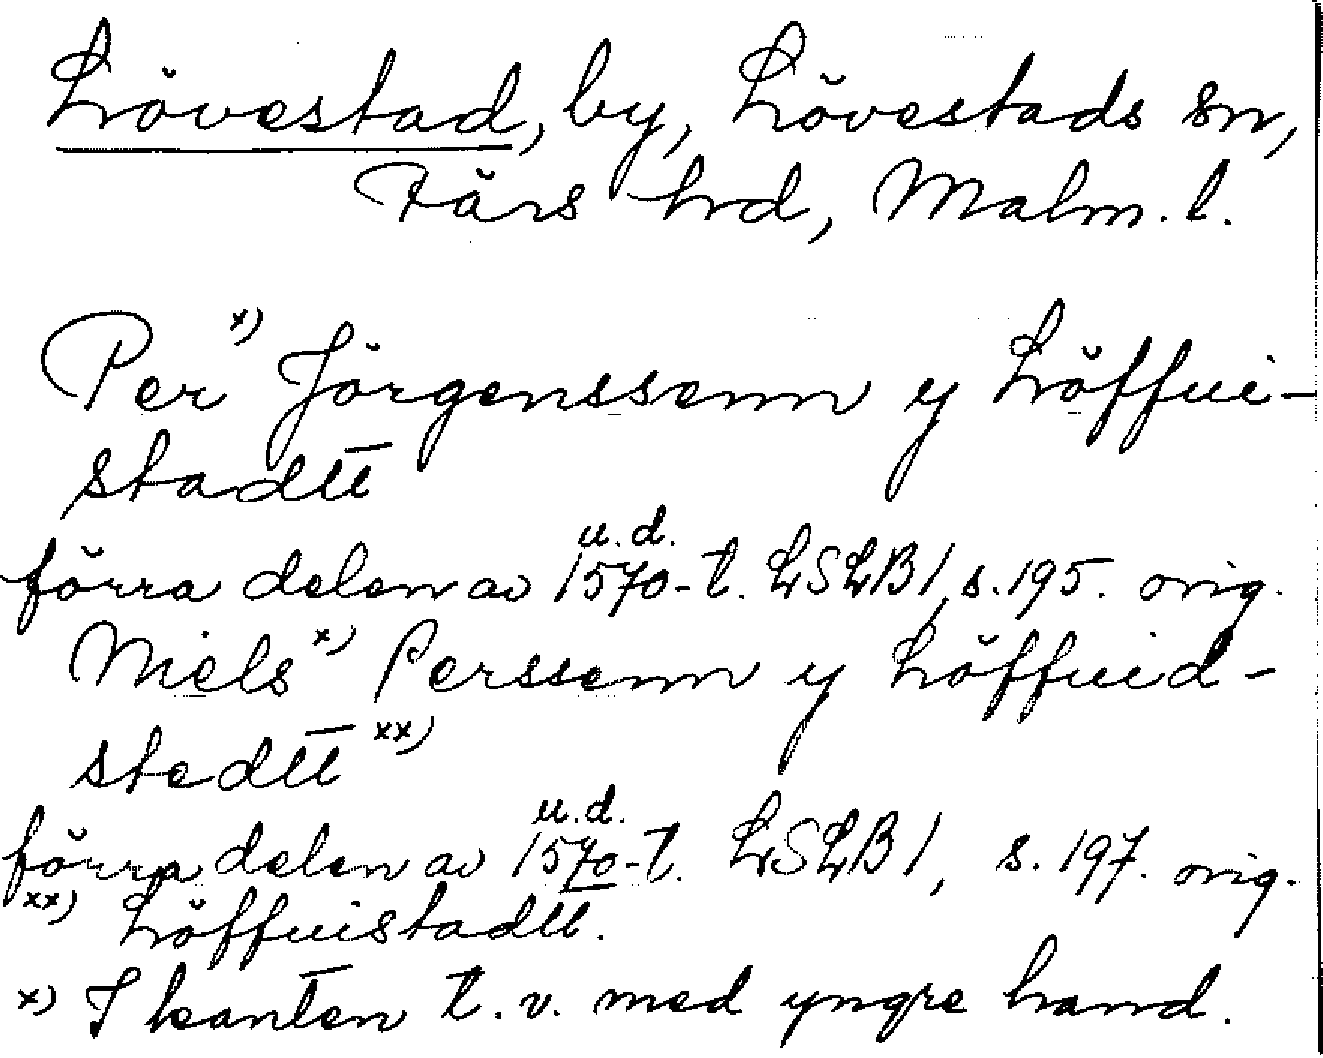 Lövestad, by, Lövestads sn,
Färs hrd, Malm. l.
Per x) Jörgenssenn y Löffui-
stadtt
u.d.
förra delen av 1570-t. LSLB1, s. 195. orig.
Niels x) Perssenn y Löffuid-
stedtt xx)
u.d.
förra delen av 1570-t. LSLB1, s. 197. orig.
xx) Löffuistadtt.
x) I kanten t. v. med yngre hand.